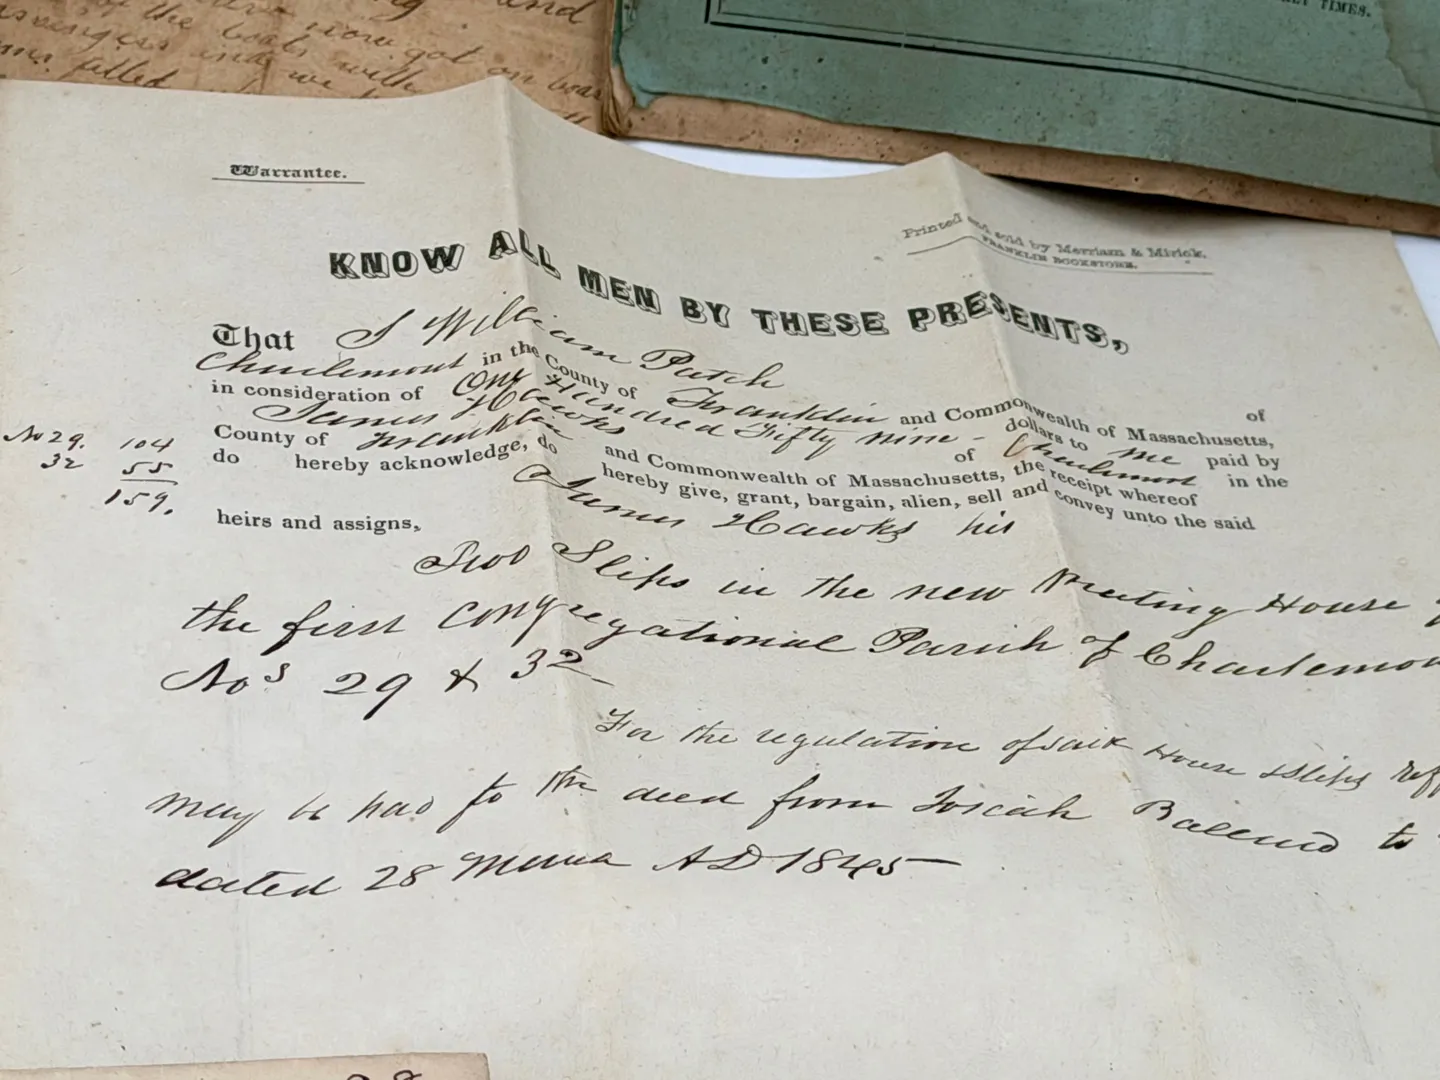 and
now got on boa
of the boats with
and we
filled
TIMES.
Warrantee.
Printed and sold by Merriam & Mirick,
FRANKLIN BOOKSTORE.
KNOW ALL MEN BY THESE PRESENTS,
That I William Patch of
Charlemont in the County of Franklin and Commonwealth of Massachusetts,
in consideration of One Hundred Fifty nine - dollars to me paid by
James Hawks of Charlemont in the
County of Franklin and Commonwealth of Massachusetts, the receipt whereof
do hereby acknowledge, do hereby give, grant, bargain, alien, sell and convey unto the said
James Hawks his
heirs and assigns,
No 29. 104
32 55
159.
Two Slips in the new Meeting House
the first Congregational Parish of Charlemo
Nos 29 & 32
For the regulation of said House & Slips ref
may be had to the deed from Josiah Ballard to
dated 28 AD 1845